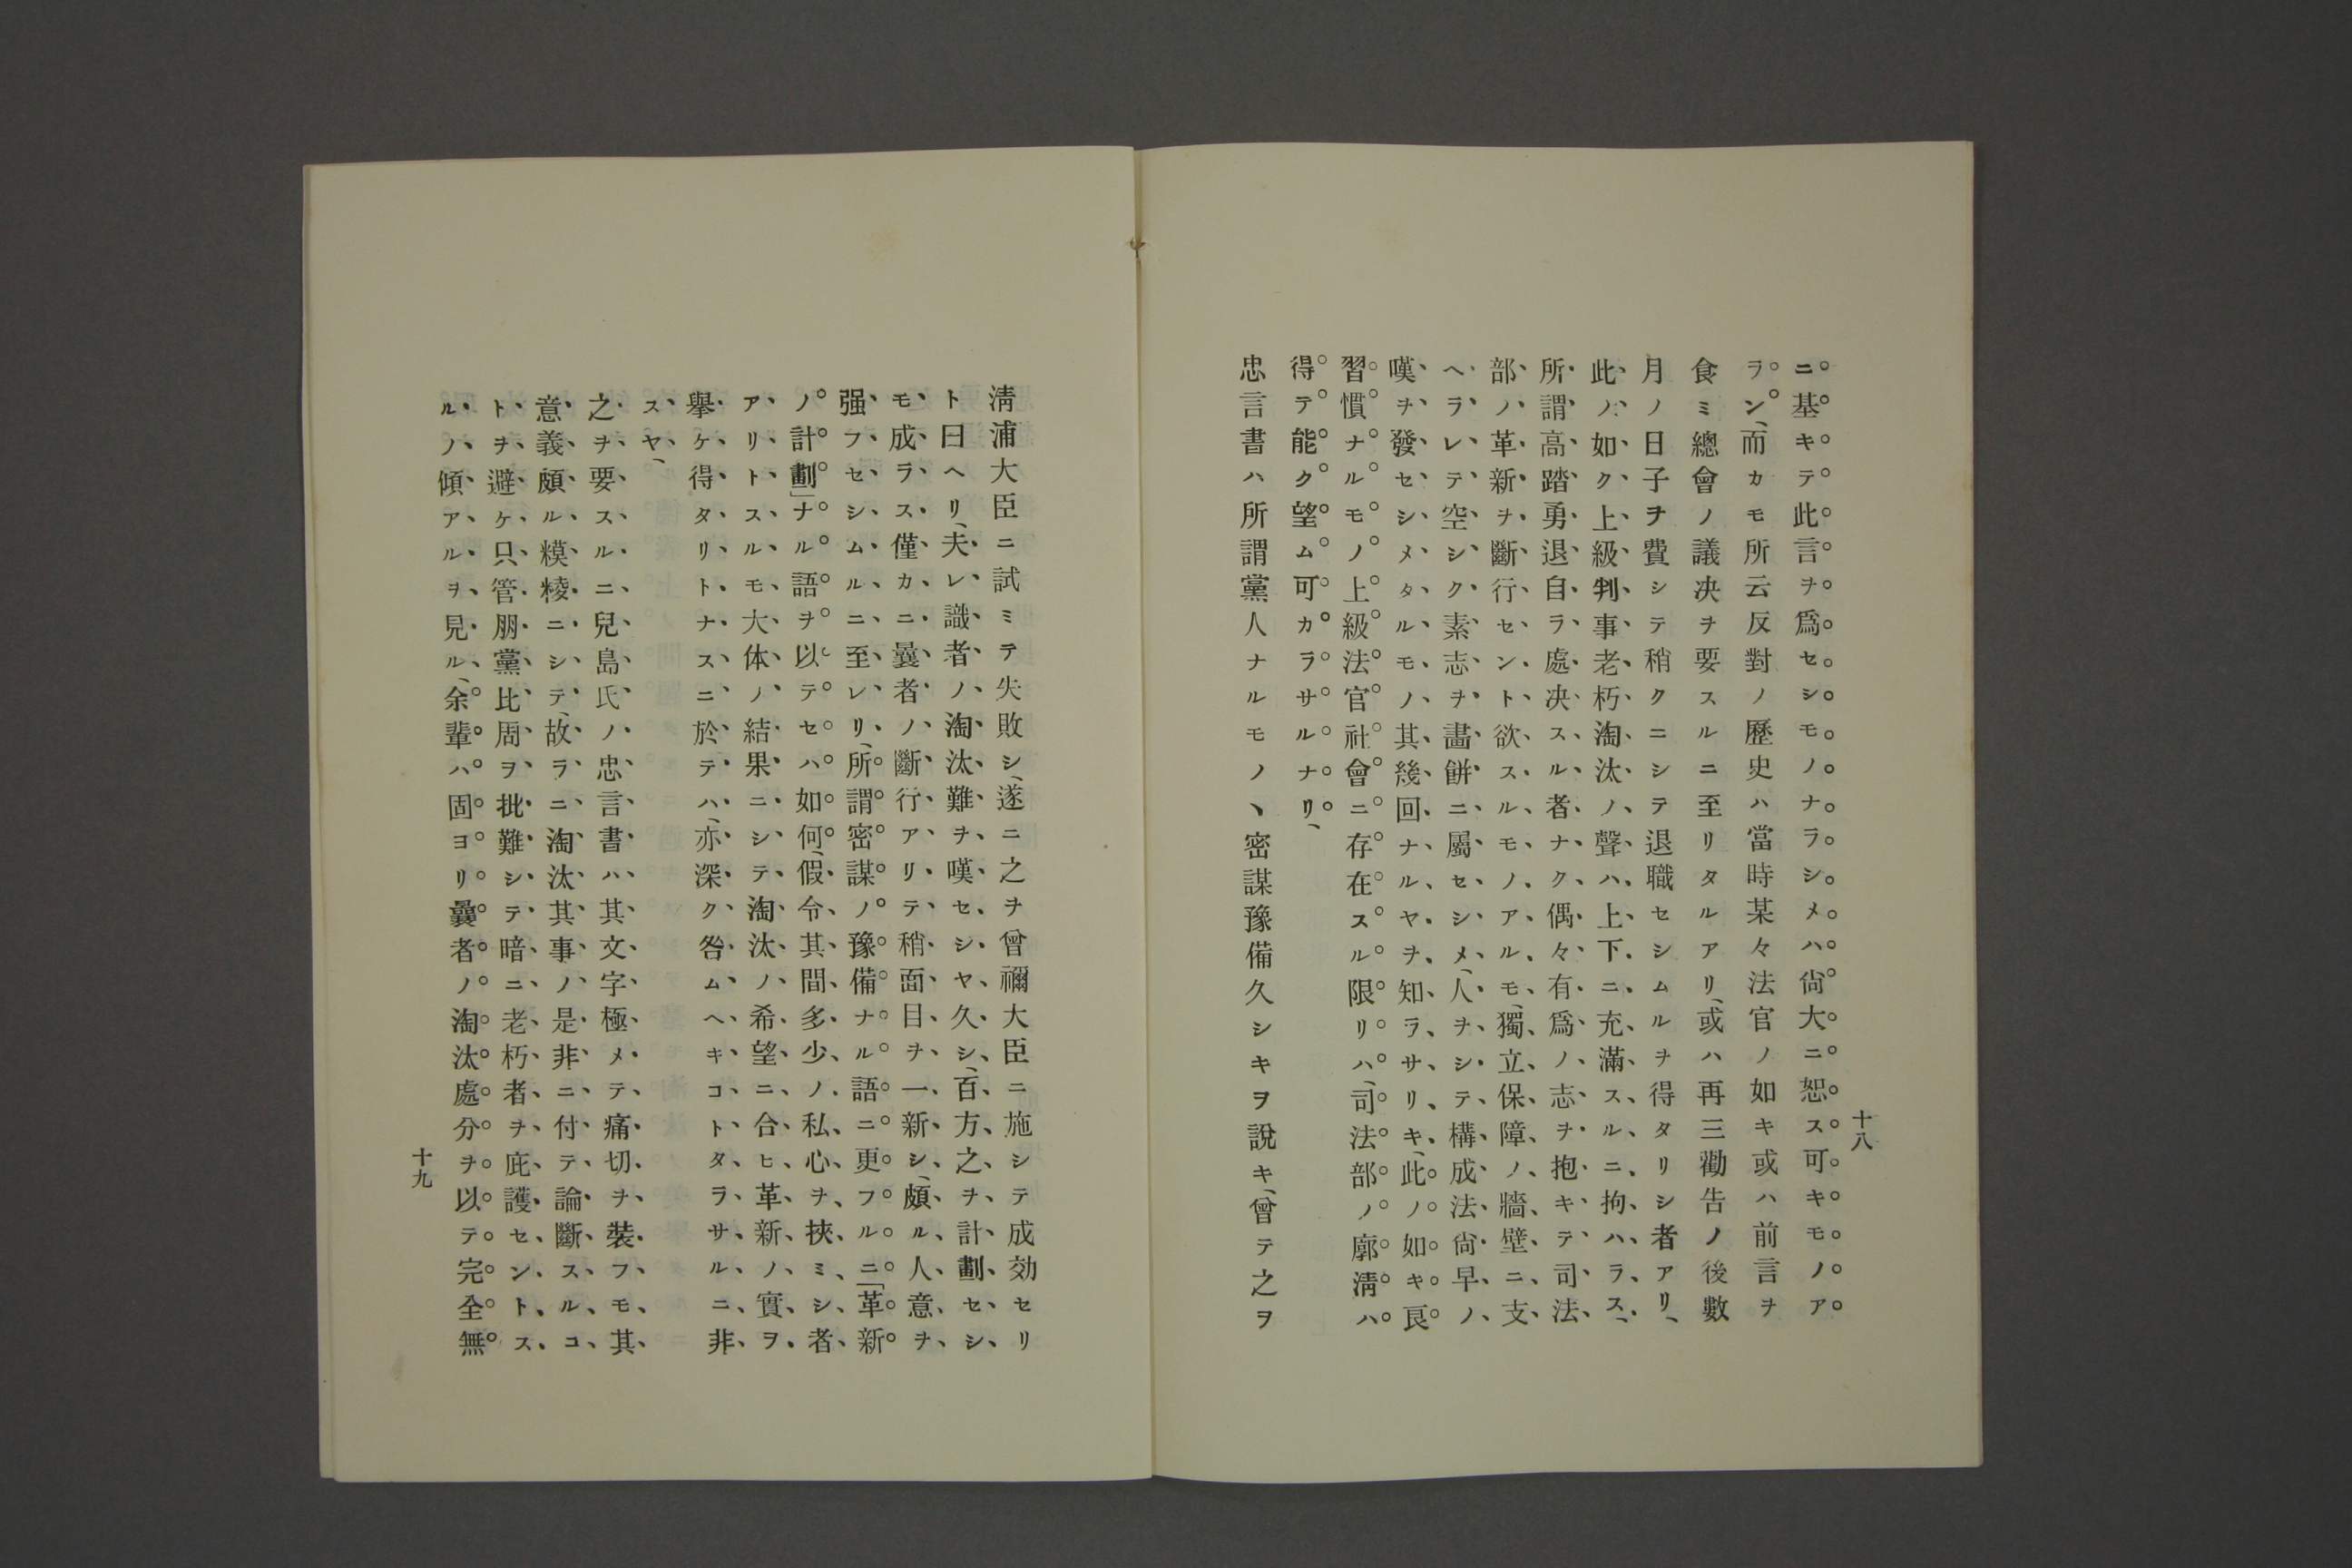 十八
ニ基キテ此言ヲ爲セシモノナラシメハ尙大ニ恕ス可キモノア
ラン、而カモ所云反對ノ歷史ハ當時某々法官ノ如キ或ハ前言ヲ
食ミ總會ノ議决ヲ要スルニ至リタルアリ、或ハ再三勸告ノ後數
月ノ日子ヲ費シテ稍クニシテ退職セシムルヲ得タリシ者アリ、
此ノ如ク上級判事老朽淘汰ノ聲ハ上下ニ充滿スルニ拘ハラス、
所謂高踏勇退自ラ處决スル者ナク偶々有爲ノ志ヲ抱キテ司法
部ノ革新ヲ斷行セント欲スルモノアルモ、獨立保障ノ牆壁ニ支
ヘラレテ空シク素志ヲ畵餅ニ屬セシメ、人ヲシテ構成法尙早ノ
嘆ヲ發セシメタルモノ其幾回ナルヤヲ知ラサリキ、此ノ如キ良
習慣ナルモノ上級法官社會ニ存在スル限リハ、司法部ノ廓淸ハ
得テ能ク望ム可カラサルナリ、
忠言書ハ所謂黨人ナルモノヽ密謀豫備久シキヲ說キ、曾テ之ヲ
淸浦大臣ニ試ミテ失敗シ、遂ニ之ヲ曾禰大臣ニ施シテ成効セリ
ト曰ヘリ、夫レ識者ノ淘汰難ヲ嘆セシヤ久シ、百方之ヲ計劃セシ
モ成ラス僅カニ曩者ノ斷行アリテ稍面目ヲ一新シ、頗ル人意ヲ
强フセシムルニ至レリ、所謂密謀ノ豫備ナル語ニ更フルニ「革新
ノ計劃」ナル語ヲ以テセハ如何、假令其間多少ノ私心ヲ挾ミシ者
アリトスルモ大体ノ結果ニシテ淘汰ノ希望ニ合ヒ革新ノ實ヲ
擧ケ得タリトナスニ於テハ、亦深ク咎ムヘキコトタラサルニ非
スヤ、
之ヲ要スルニ兒島氏ノ忠言書ハ其文字極メテ痛切ヲ裝フモ其
意義頗ル糢稜ニシテ、故ラニ淘汰其事ノ是非ニ付テ論斷スルコ
トヲ避ケ只管朋黨比周ヲ批難シテ暗ニ老朽者ヲ庇護セントス
ルノ傾アルヲ見ル、余輩ハ固ヨリ曩者ノ淘汰處分ヲ以テ完全無
十九